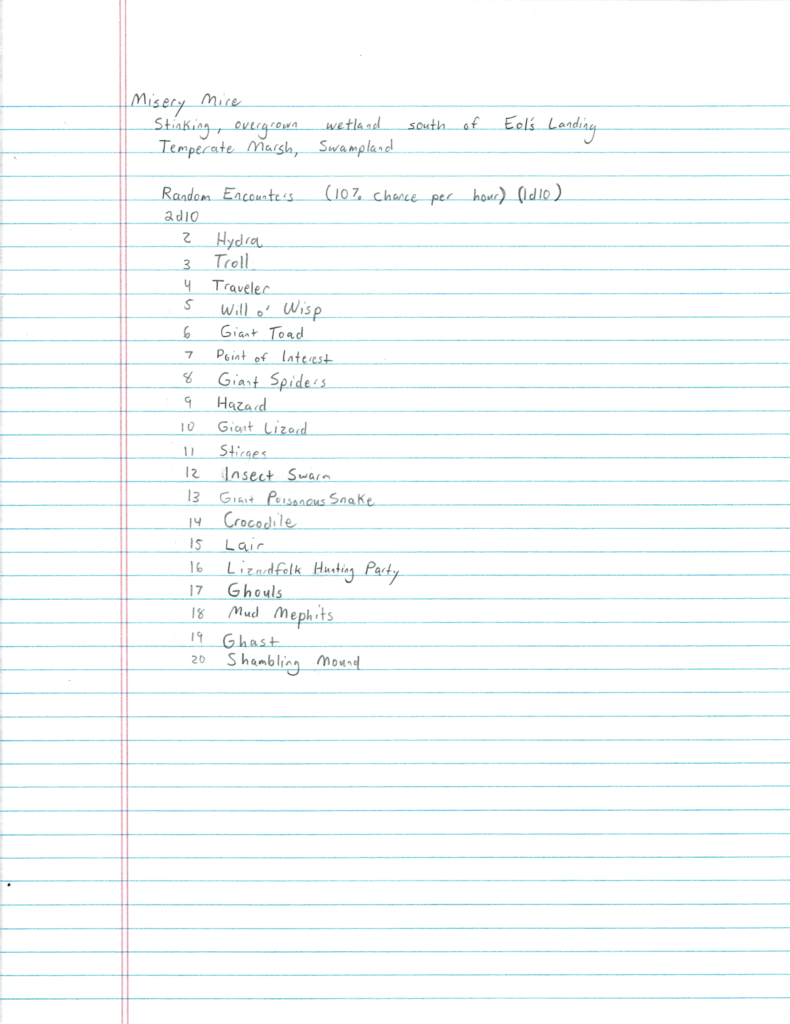 Misery Mire
Stinking, overgrown wetland south of Eol's Landing
Temperate Marsh, Swampland
Random Encounters (10% chance per hour) (1d10)
2d10
2 Hydra
3 Troll
4 Traveler
5 Will o' Wisp
6 Giant Toad
7 Point of Interest
8 Giant Spiders
9 Hazard
10 Giant Lizard
11 Stirges
12 Insect Swarm
13 Giant Poisonous Snake
14 Crocodile
15 Lair
16 Lizardfolk Hunting Party
17 Ghouls
18 Mud Mephits
19 Ghast
20 Shambling Mound